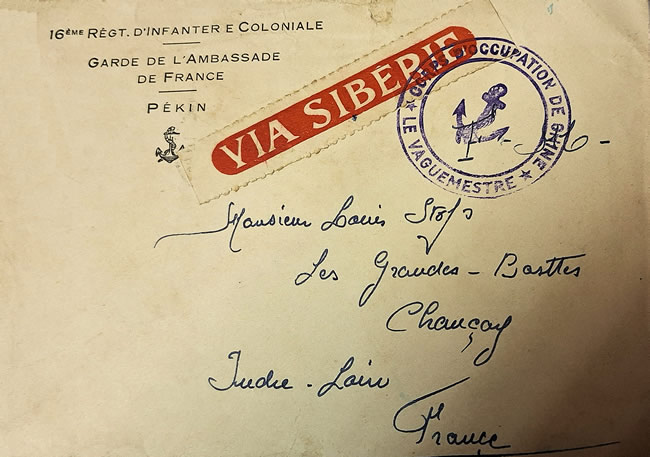 16ÈME RÉGT. D'INFANTER E COLONIALE
GARDE DE L'AMBASSADE
DE FRANCE
PÉKIN
VIA SIBÉRIE
CORPS D'OCCUPATION DE CHINE
★ LE VAGUEMESTRE ★
Monsieur Louis
Les Grandes-
Chançay
Indre-Loire
France